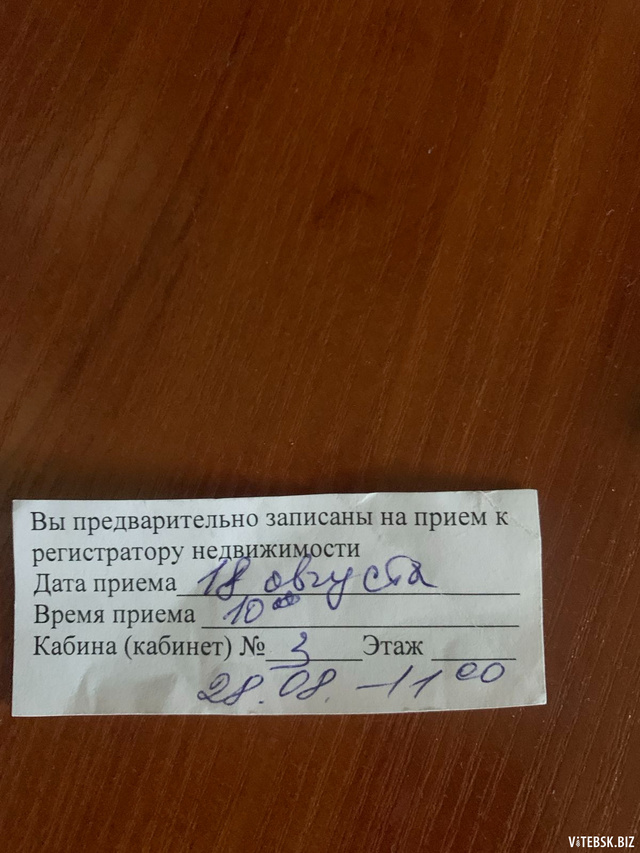 Вы предварительно записаны на прием к
регистратору недвижимости
Дата приема 18 августа
Время приема 10 00
Кабина (кабинет) № 3 Этаж
28.08. – 11 00
VITEBSK.BIZ